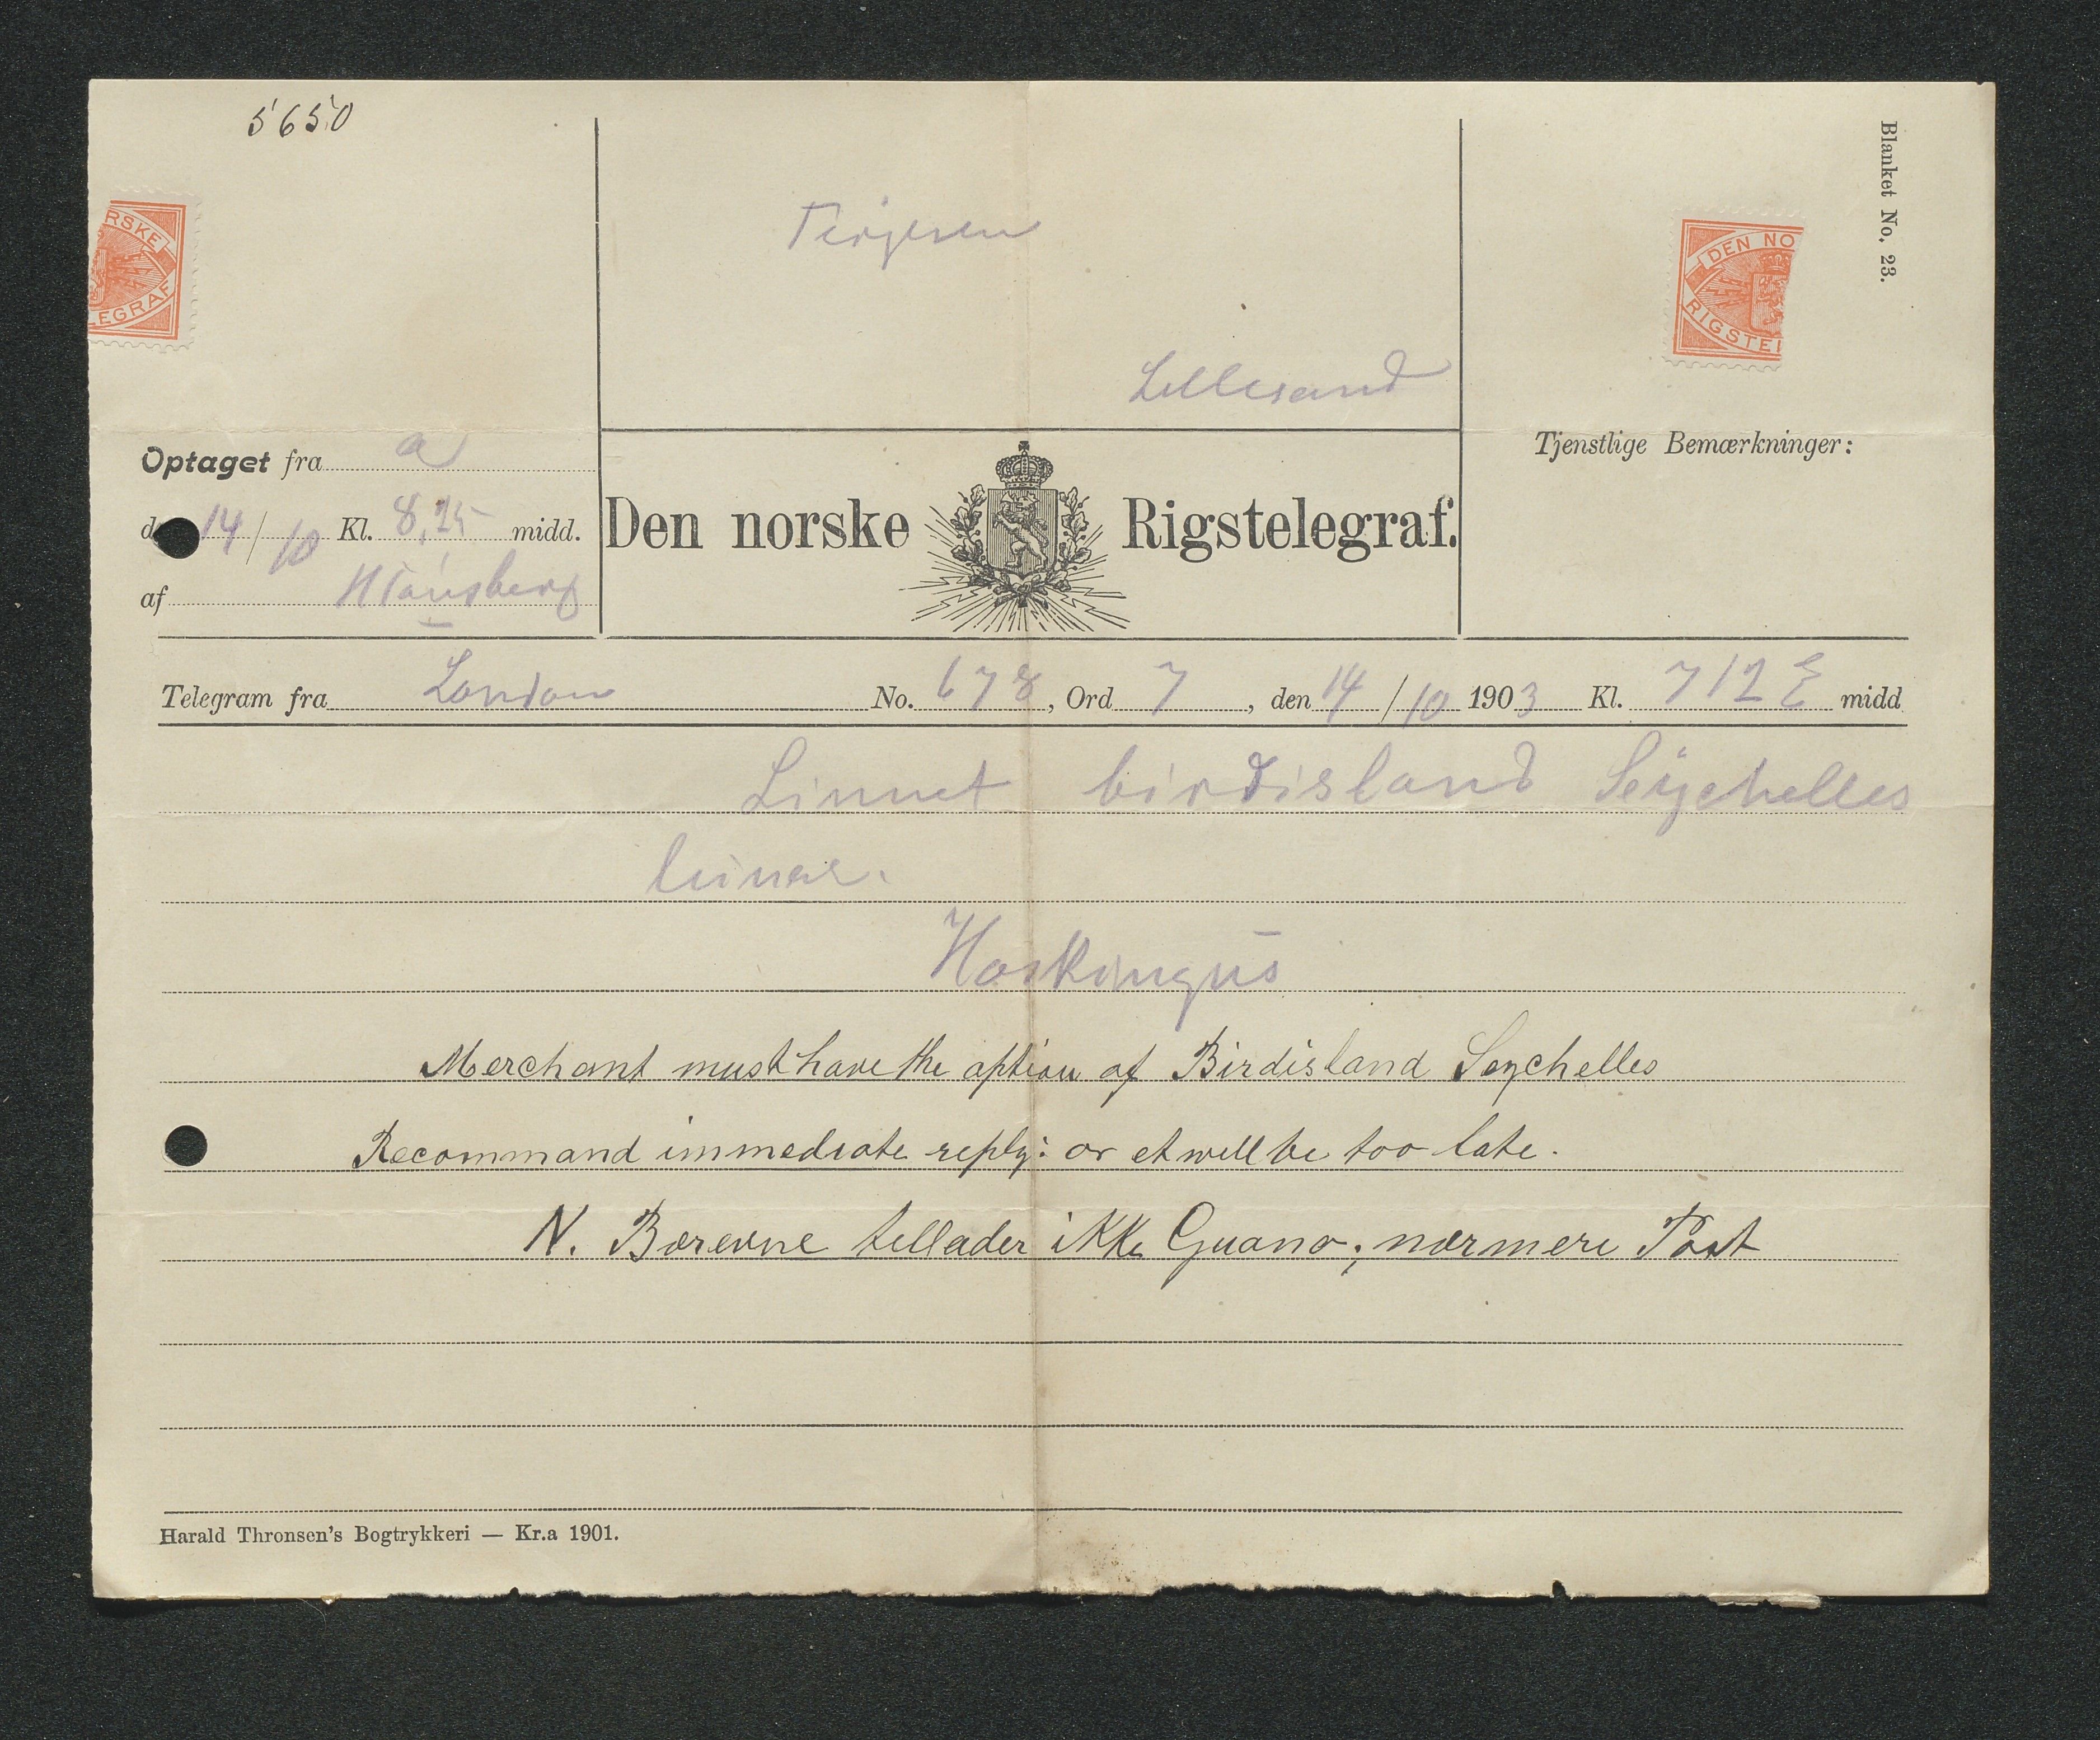 5650
Blanket No. 23.
RSKE
LEGRAF
DEN NO
RIGSTEL
Terjesen
Lillesand
Optaget fra a
14/10 Kl. 8,25 midd.
af
Den norske Rigstelegraf.
Tjenstlige Bemærkninger:
Telegram fra London No. 678, Ord 7, den 14/10 1903 Kl. 712 E midd
Linnet birdisland Seychelles
Merchant must have the option of Birdisland Seychelles
Recommand immediate reply: or et will be too late.
N. Børevne tellader ikke Guano; nærmere Post
Harald Thronsen's Bogtrykkeri — Kr.a 1901.